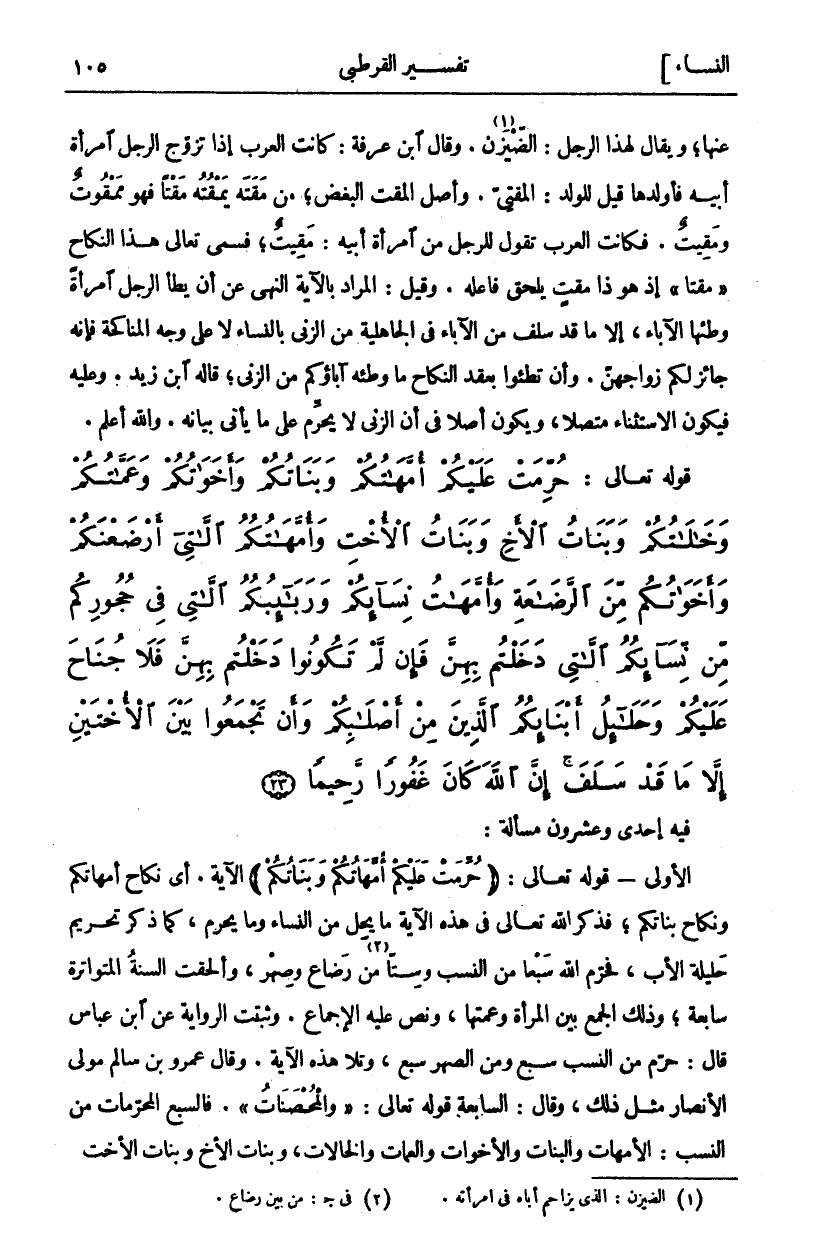 النساء ] تفسير القرطبى ١٠٥
عنها؛ ويقال لهذا الرجل : الضَّيْزَن (١) . وقال ٱبن عرفة : كانت العرب إذا تزوّج الرجل ٱمرأة
أبيــه فأولدها قيل للولد : المقتِىّ . وأصل المقت البغض؛ من مَقَتَه يَمْقُتُه مَقْتاً فهو مَمْقُوتٌ
ومَقِيتٌ . فكانت العرب تقول للرجل من ٱمرأة أبيه : مَقِيتٌ؛ فسمى تعالى هــذا النكاح
« مقتا » إذ هو ذا مقتٍ يلحق فاعله . وقيل : المراد بالآية النهى عن أن يطأ الرجل ٱمرأةً
وطئها الآباء ، إلا ما قد سلف من الآباء فى الجاهلية من الزنى بالنساء لا على وجه المناكحة فإنه
جائز لكم زواجهنّ . وأن تطئوا بعقد النكاح ما وطئه آباؤكم من الزنى؛ قاله ٱبن زيد . وعليه
فيكون الاستثناء متصلا، ويكون أصلا فى أن الزنى لا يحرّم على ما يأتى بيانه . والله أعلم .
قوله تعـالى : حُرِّمَتْ عَلَيْكُمْ أُمَّهَـٰتُكُمْ وَبَنَاتُكُمْ وَأَخَوَٰتُكُمْ وَعَمَّـٰتُكُمْ
وَخَـٰلَـٰتُكُمْ وَبَنَاتُ ٱلْأَخِ وَبَنَاتُ ٱلْأُخْتِ وَأُمَّهَـٰتُكُمُ ٱلَّـٰتِىٓ أَرْضَعْنَكُمْ
وَأَخَوَٰتُكُم مِّنَ ٱلرَّضَـٰعَةِ وَأُمَّهَـٰتُ نِسَآئِكُمْ وَرَبَـٰٓئِبُكُمُ ٱلَّـٰتِى فِى حُجُورِكُم
مِّن نِّسَآئِكُمُ ٱلَّـٰتِى دَخَلْتُم بِهِنَّ فَإِن لَّمْ تَكُونُوا دَخَلْتُم بِهِنَّ فَلَا جُنَاحَ
عَلَيْكُمْ وَحَلَـٰٓئِلُ أَبْنَآئِكُمُ ٱلَّذِينَ مِنْ أَصْلَـٰبِكُمْ وَأَن تَجْمَعُوا بَيْنَ ٱلْأُخْتَيْنِ
إِلَّا مَا قَدْ سَلَفَ ۚ إِنَّ ٱللَّهَ كَانَ غَفُورًا رَّحِيمًا ﴿٢٣﴾
فيه إحدى وعشرون مسألة :
الأولى — قوله تعـالى : ﴿ حُرِّمَتْ عَلَيْكُمْ أُمَّهَاتُكُمْ وَبَنَاتُكُمْ ﴾ الآية . أى نكاح أمهاتكم
ونكاح بناتكم ؛ فذكر الله تعـالى فى هذه الآية ما يحل من النساء وما يحرم ، كما ذكر تحـريم
حَلِيلة الأب ، فحرّم الله سَبْعا من النسب وسِتّاً من رَضَاع وصِهْر (٢) ، وألحقت السنةُ المتواترة
سابعة ؛ وذلك الجمع بين المرأة وعمتها ، ونص عليه الإجماع . وثبتت الرواية عن ٱبن عباس
قال : حرّم من النسب سبع ومن الصهر سبع ، وتلا هذه الآية . وقال عمرو بن سالم مولى
الأنصار مثـل ذلك ، وقال : السابعة قوله تعالى : « وٱلْمُحْصَنَاتُ » . فالسبع المحرّمات من
النسب : الأمهات والبنات والأخوات والعمات والخالات، وبنات الأخ وبنات الأخت
(١) الضيزن : الذى يزاحم أباه فى امرأته . (٢) فى جـ : من بين رضاع .